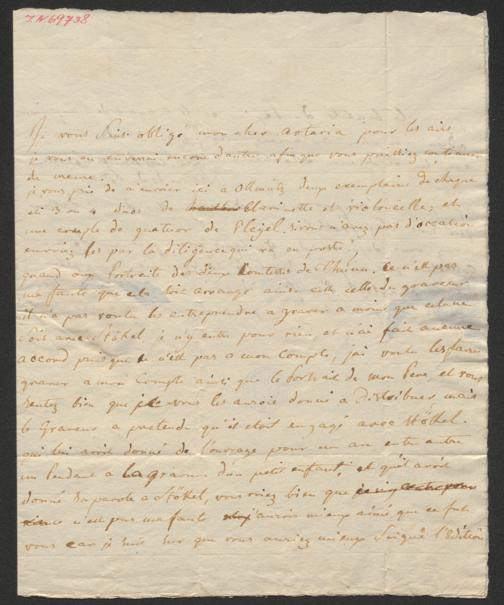 I.N 69738
Je vous suis obligé mon cher Artaria pour les airs
je vous en enverrai encore d'autres afin que vous puissiez continuer
de meme.
je vous prie de m'envoier ici a Ollmütz deux exemplaires de chaque
et 3 ou 4 duos de Clarinette et violoncelle, et
une couple de quatuor de Pleÿel, si vous n'avez pas d'occasion
envoiez les par la diligence qui va en poste.
quand aux Portraits des deux Comtesses de Thun. Ce n'est pas
ma faute que cela soit arrangé ainsi c'est celle du graveur
il n'a pas voulu les entreprendre a graver a moins que cela ne
soit avec Stökel, je n'y entre pour rien, et n'ai fait aucun
accord puisque n'est pas a mon Compte, j'ai voulu les faire
graver a mon Compte ainsi que le Portrait de mon Pere, et vous
sentez bien que je vous les aurois donné a Distribuer mais
le Graveur a pretendu qu'il etoit engagé avec Stökel.
qui lui avoit donné de l'ouvrage pour un an entre autre
un Pendant a la gravure d'un petit enfant, et qu'il avoit
donné sa parole a Stökel, vous voiez bien que
n'est pas ma faute j'aurois mieux aimé que ce fut
vous car je suis sur que vous auriez mieux soigné l'Edition